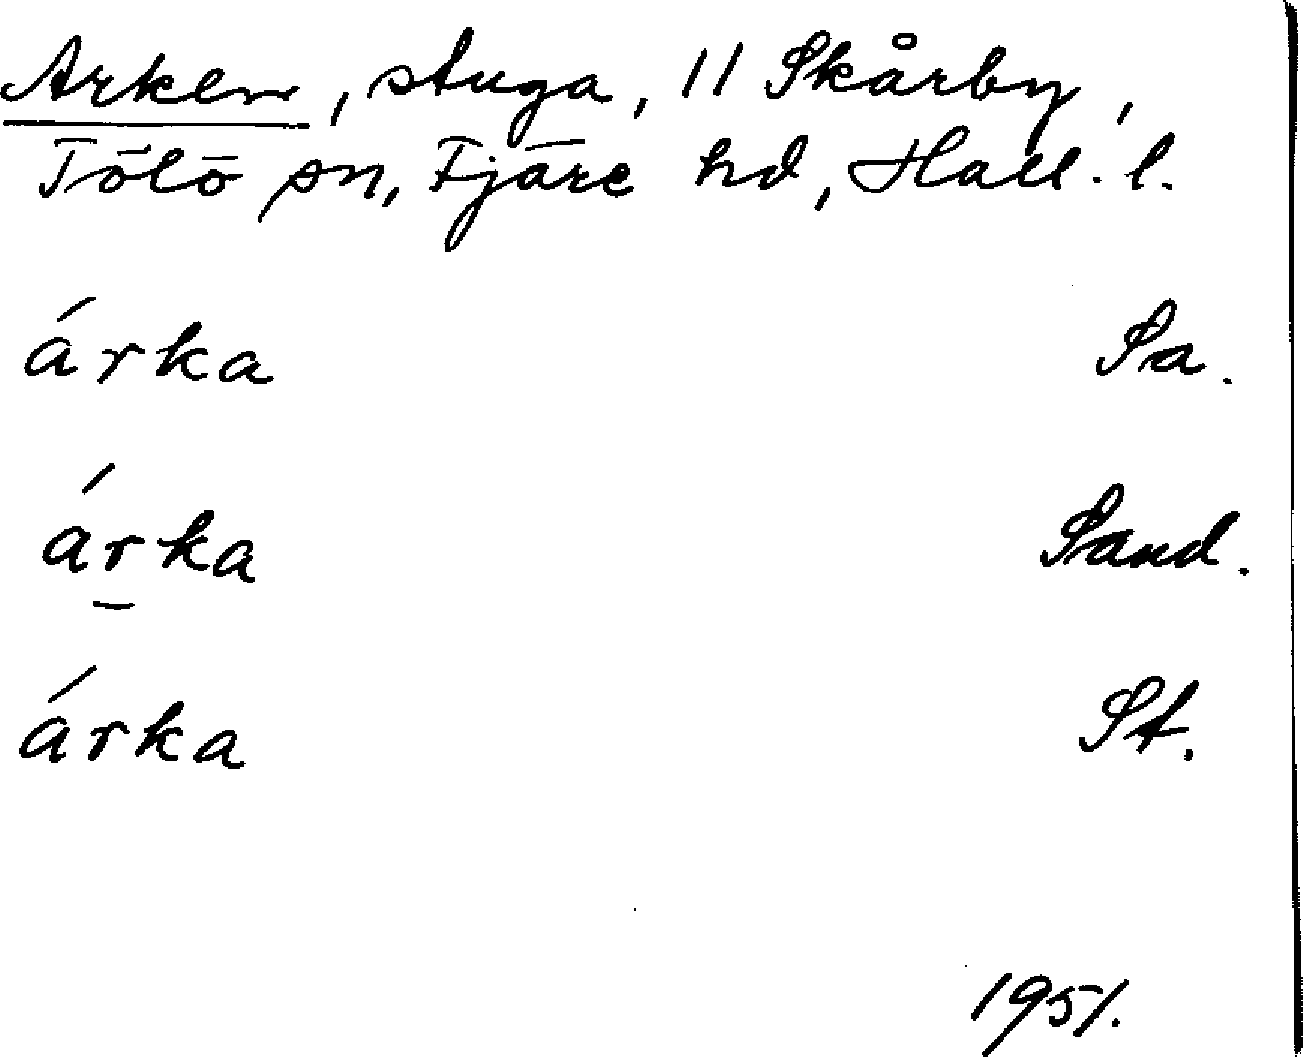 Arken, stuga, 11 Skårby,
Tölö sn, Fjäre hd, Hall. l.
árka Sa.
árka Sand.
árka St.
1951.